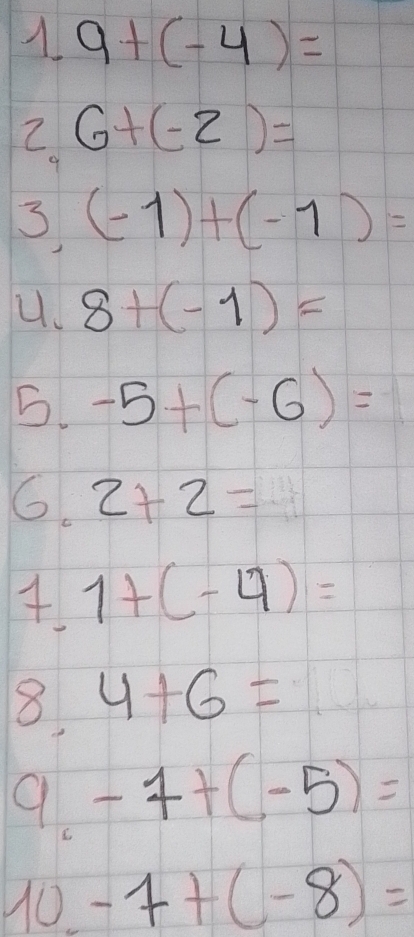 1. 9+(-4)=
2. 6+(-2)=
3. (-1)+(-1)=
4. 8+(-1)=
5. -5+(-6)=
6. 2+2=
7. 1+(-4)=
8. 4+6=
9. -7+(-5)=
10. -7+(-8)=